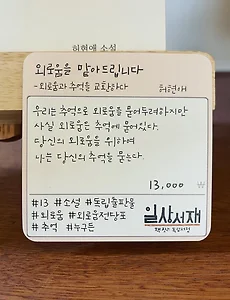 허현애 소설
외로움을 맡아드립니다
-외로움과 추억을 교환하다 허현애
우리는 추억으로 외로움을 묻어두려하지만
사실 외로움은 추억에 묻어있다.
당신의 외로움을 위하여
나는 당신의 추억을 묻는다.
13,000 ₩
#13 #소설 #독립출판물
#외로움 #외로움전당포
#추억 #누구든
일상서재